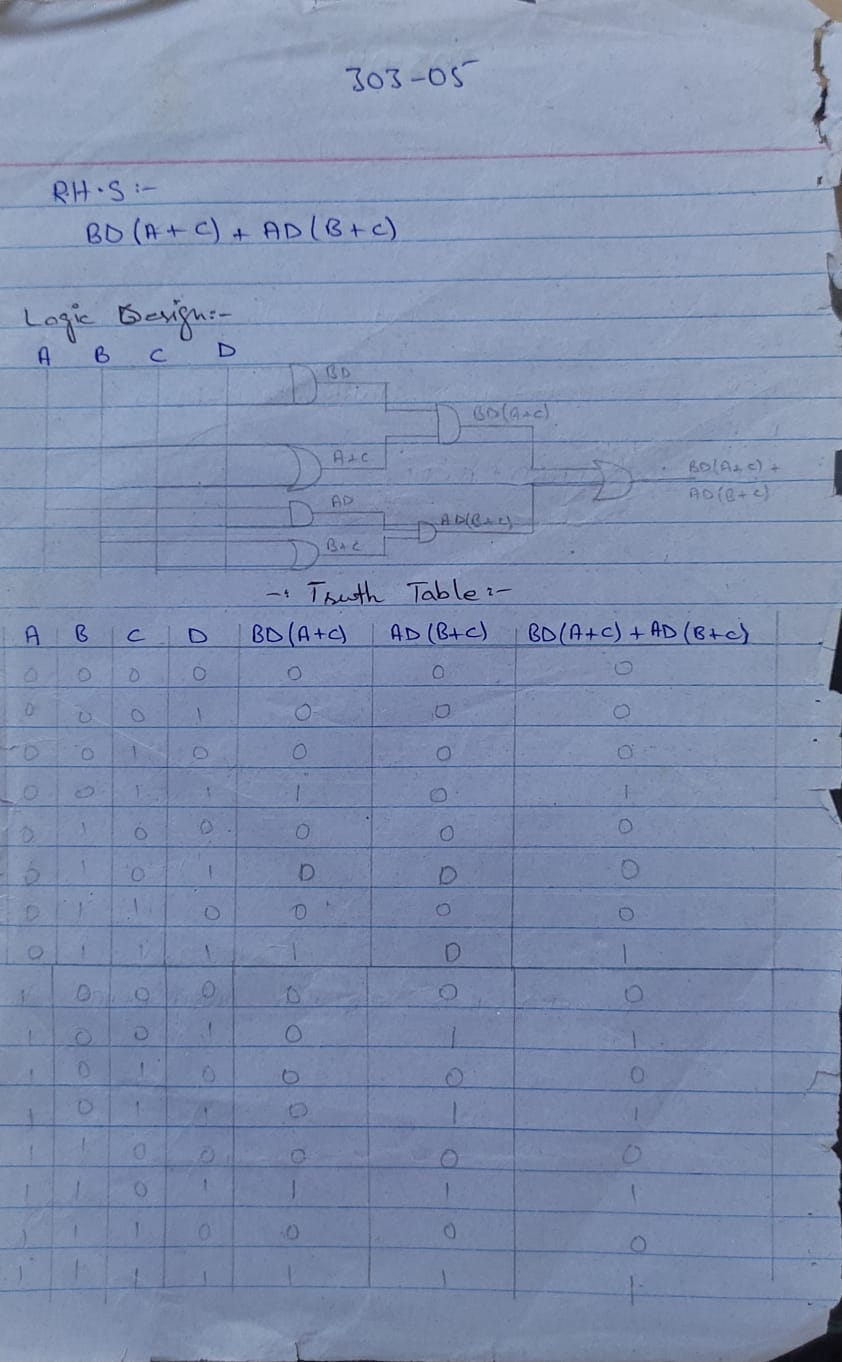 303-05
R.H.S :-
BD (A + C) + AD (B + C)
Logic Design:-
A B C D
BD
BD(A+C)
A+C
BD(A+C) +
AD(B+C)
AD
AD(B+C)
B+C
-: Truth Table :-
A B C D BD(A+C) AD(B+C) BD(A+C) + AD(B+C)
0 0 0 0 0 0 0
0 0 0 1 0 0 0
0 0 1 0 0 0 0
0 0 1 1 1 0 1
0 1 0 0 0 0 0
0 1 0 1 0 0 0
0 1 1 0 0 0 0
0 1 1 1 1 0 1
1 0 0 0 0 0 0
1 0 0 1 0 1 1
1 0 1 0 0 0 0
1 0 1 1 0 1 1
1 1 0 0 0 0 0
1 1 0 1 1 1 1
1 1 1 0 0 0 0
1 1 1 1 1 1 1